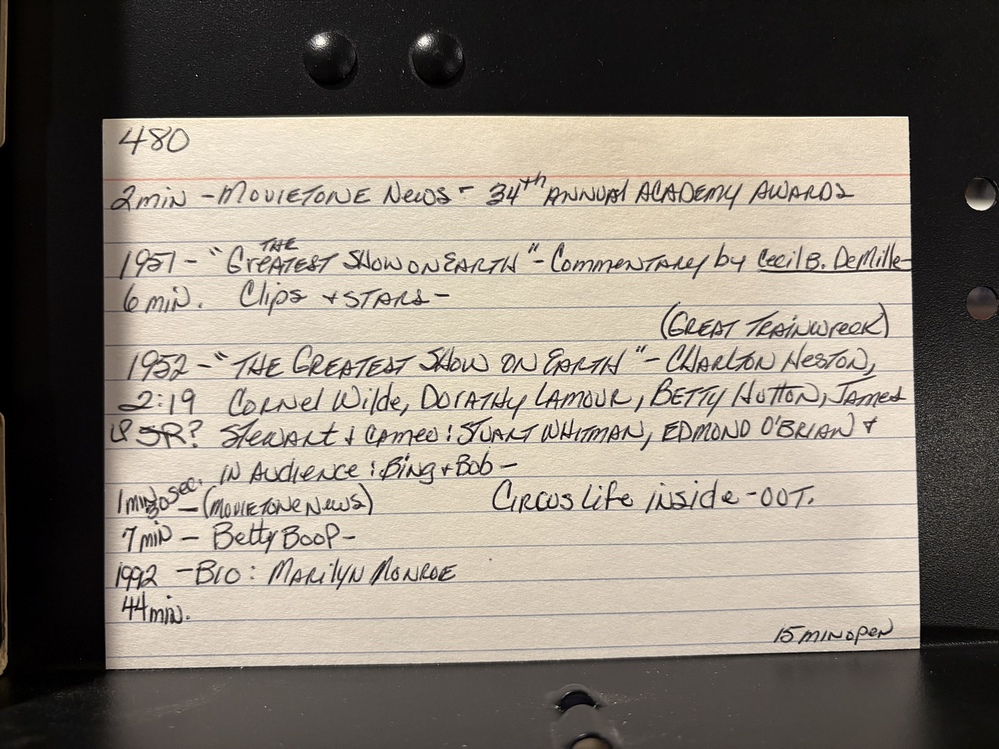 480
2min - MOVIETONE News - 34th ANNUAl ACADEMY AWARDS
1951 - "THE GREATEST SHOW ON EARTH" - COMMENTARY by Cecil B. DeMille
6 min. Clips + STARS -
(GREAT TRAINWreck)
1952 - "THE GREATEST SHOW ON EARTH" - CHARLTON HESTON,
2:19 CORNEl Wilde, DORATHY LAMOUR, BETTY HUTTON, JAMES
SR? STEWART & CAMEO: STUART WHITMAN, EDMOND O'BRIAN +
IN AUDIENCE: Bing + Bob -
1min30sec. - (MOVIETONE NEWS) CIRCUS life inside - OUT.
7min - Betty BOOP -
1992 - BIO: MARILYN MONROE
44min.
15 MIN OPEN